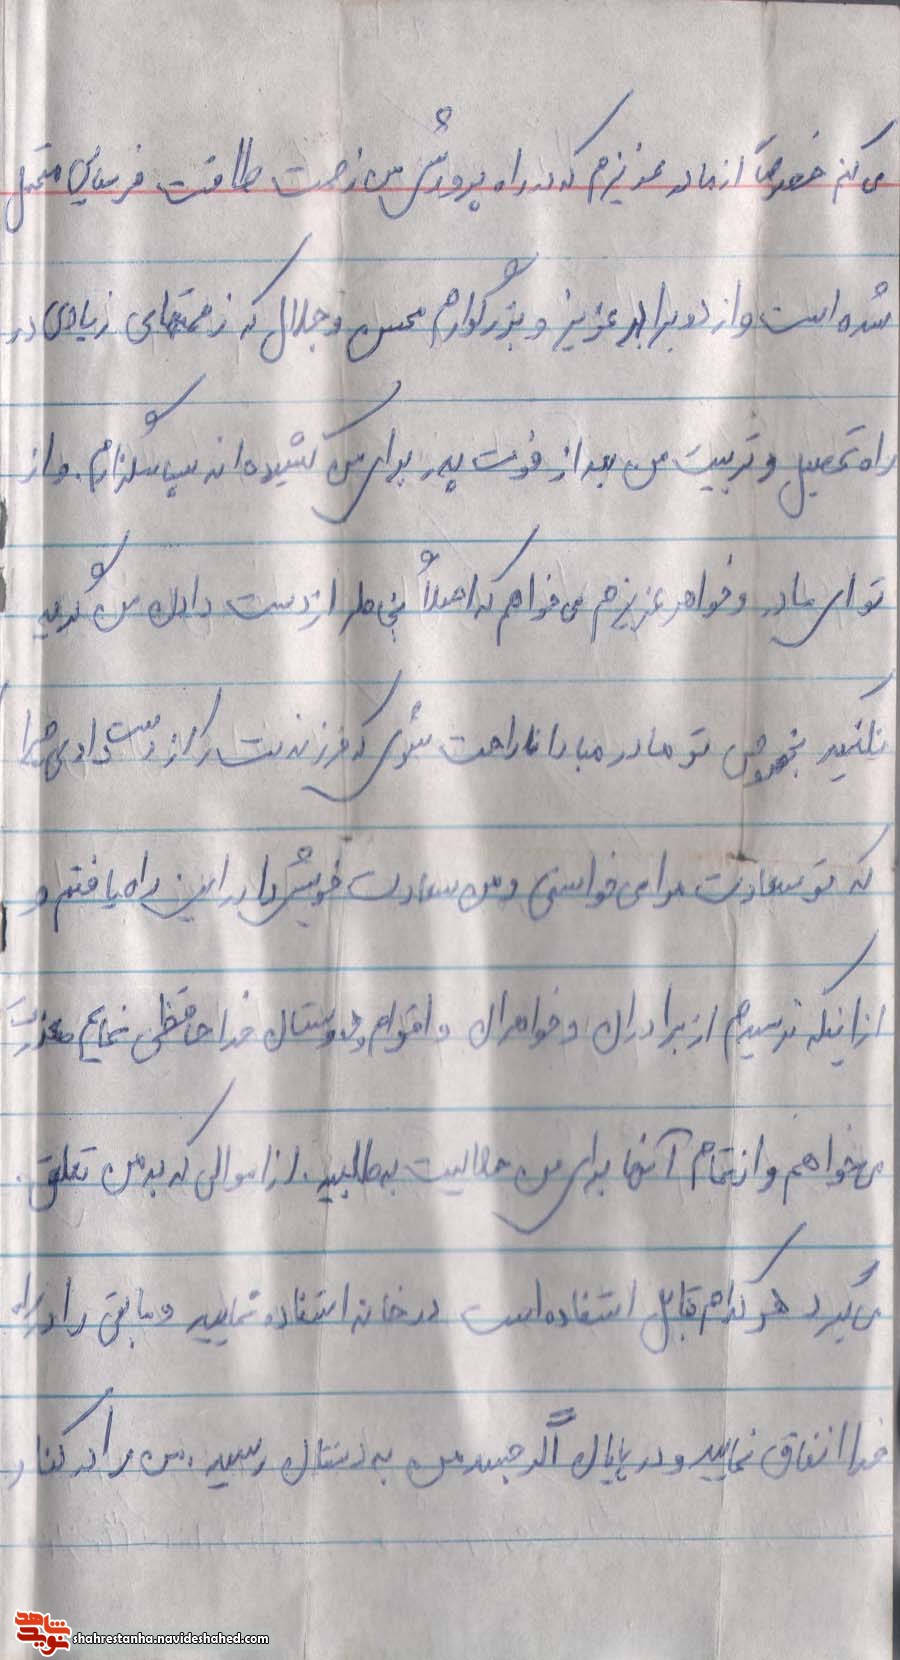 می‌کنم خصوصاً از مادر عزیزم که در راه پرورش من زحمت طاقت فرسایی متحمل
شده است و از دو برادر عزیز و بزرگوارم محسن و جلال که زحمتهای زیادی در
راه تحصیل و تربیت من بعد از فوت پدر برای من کشیده‌اند سپاسگزارم. و از
تو ای مادر و خواهر عزیزم می‌خواهم که اصلاً بخاطر از دست دادن من گریه
نکنید بخصوص تو مادر مبادا ناراحت شوی که فرزندت را از دست دادی چرا
که تو سعادت مرا می‌خواستی و من سعادت خویش را در این راه یافتم و
از اینکه نرسیدم از برادران و خواهران و اقوام و دوستان خداحافظی نمایم معذرت
می‌خواهم و از تمام آنها برای من حلالیت بطلبید. از اموالی که به من تعلق
می‌گیرد هر کدام قابل استفاده است در خانه استفاده نمایید و مابقی را در راه
خدا انفاق نمایید و در پایان اگر جسد من به دستتان رسید، من را در کنار
شاهد
نوید
shahrestanha.navideshahed.com